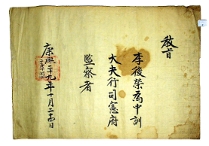 教旨
李後榮爲中訓
大夫行司憲府
監察者
康熙二十九年十月二十日